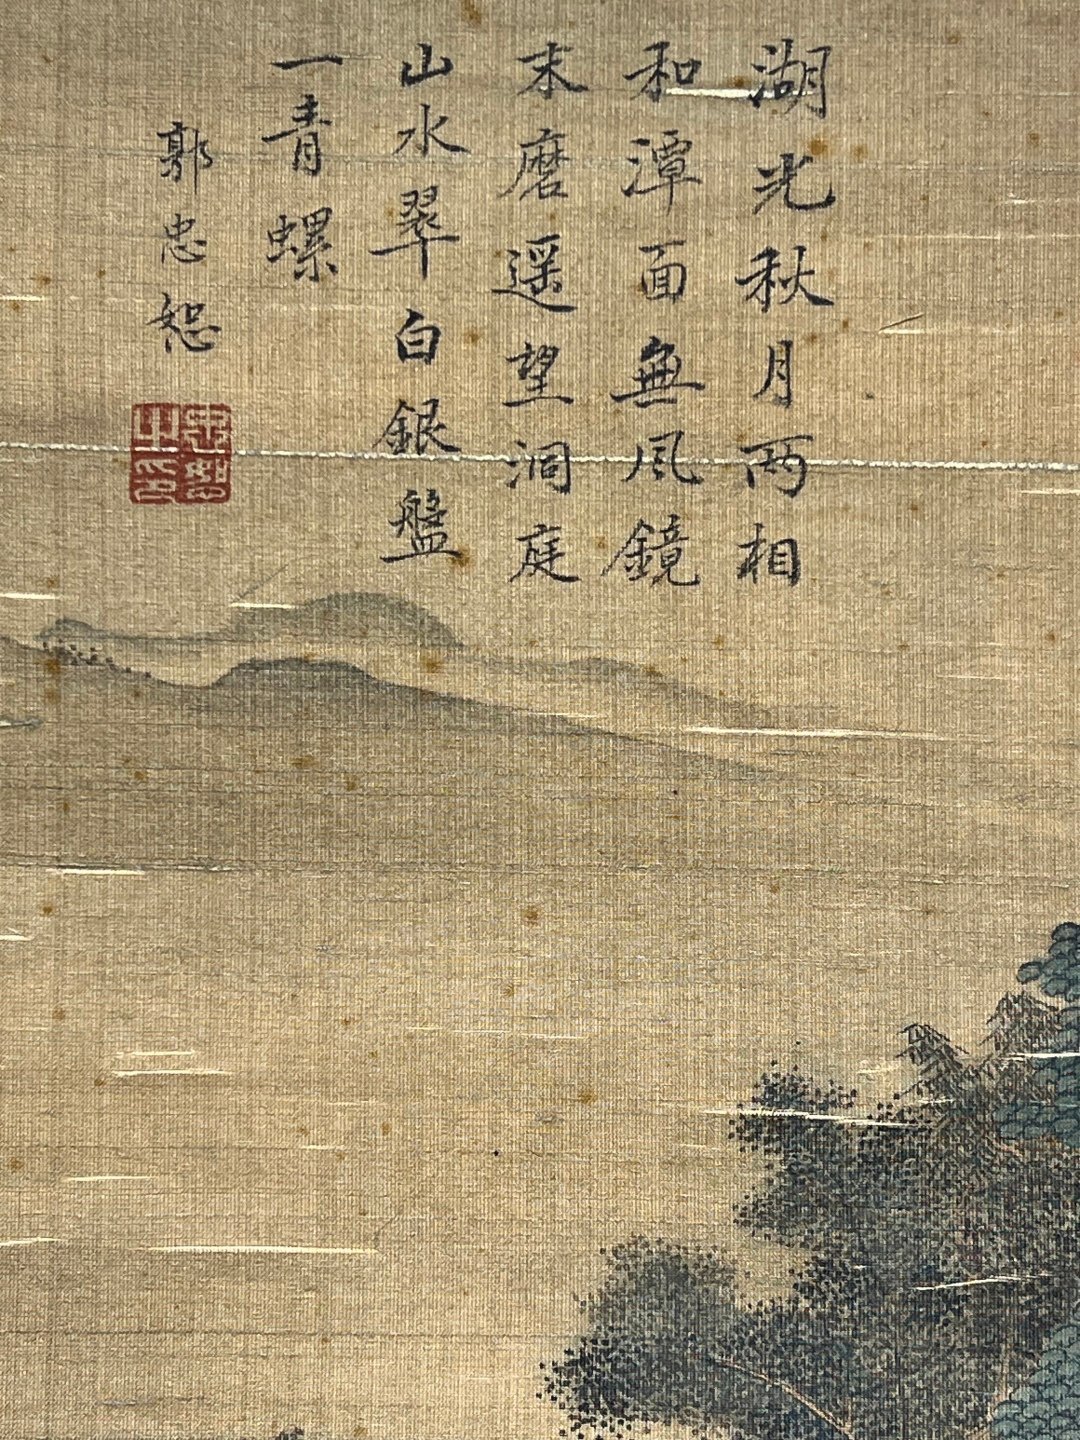 湖光秋月两相
和潭面無風鏡
末磨遥望洞庭
山水翠白銀盤
一青螺
郭忠恕
忠恕之印